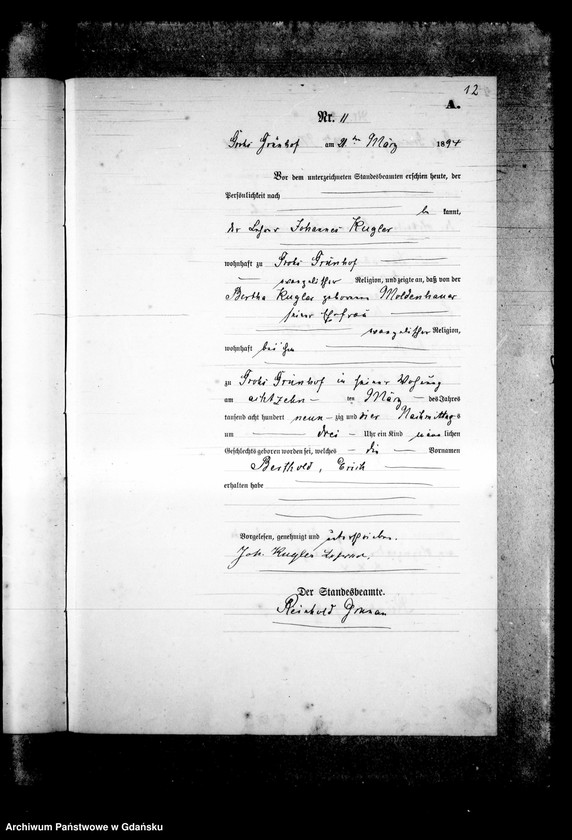 12
A.
Nr. 11
Groß Grünhof am 21ten März 1894
Vor dem unterzeichneten Standesbeamten erschien heute, der
Persönlichkeit nach
be kannt,
der Lehrer Johannes Kugler
wohnhaft zu Groß Grünhof
evangelischer Religion, und zeigte an, daß von der
Bertha Kugler geborenen Moldenhauer
seiner Ehefrau
evangelischer Religion,
wohnhaft bei ihm
zu Groß Grünhof in seiner Wohnung
am achtzehn ten März des Jahres
tausend acht hundert neun zig und vier Nachmittags
um drei Uhr ein Kind männlichen
Geschlechts geboren worden sei, welches die Vornamen
Berthold, Erich
erhalten habe
Vorgelesen, genehmigt und unterschrieben.
Joh. Kugler Lehrer.
Der Standesbeamte.
Reinhold
Archiwum Państwowe w Gdańsku